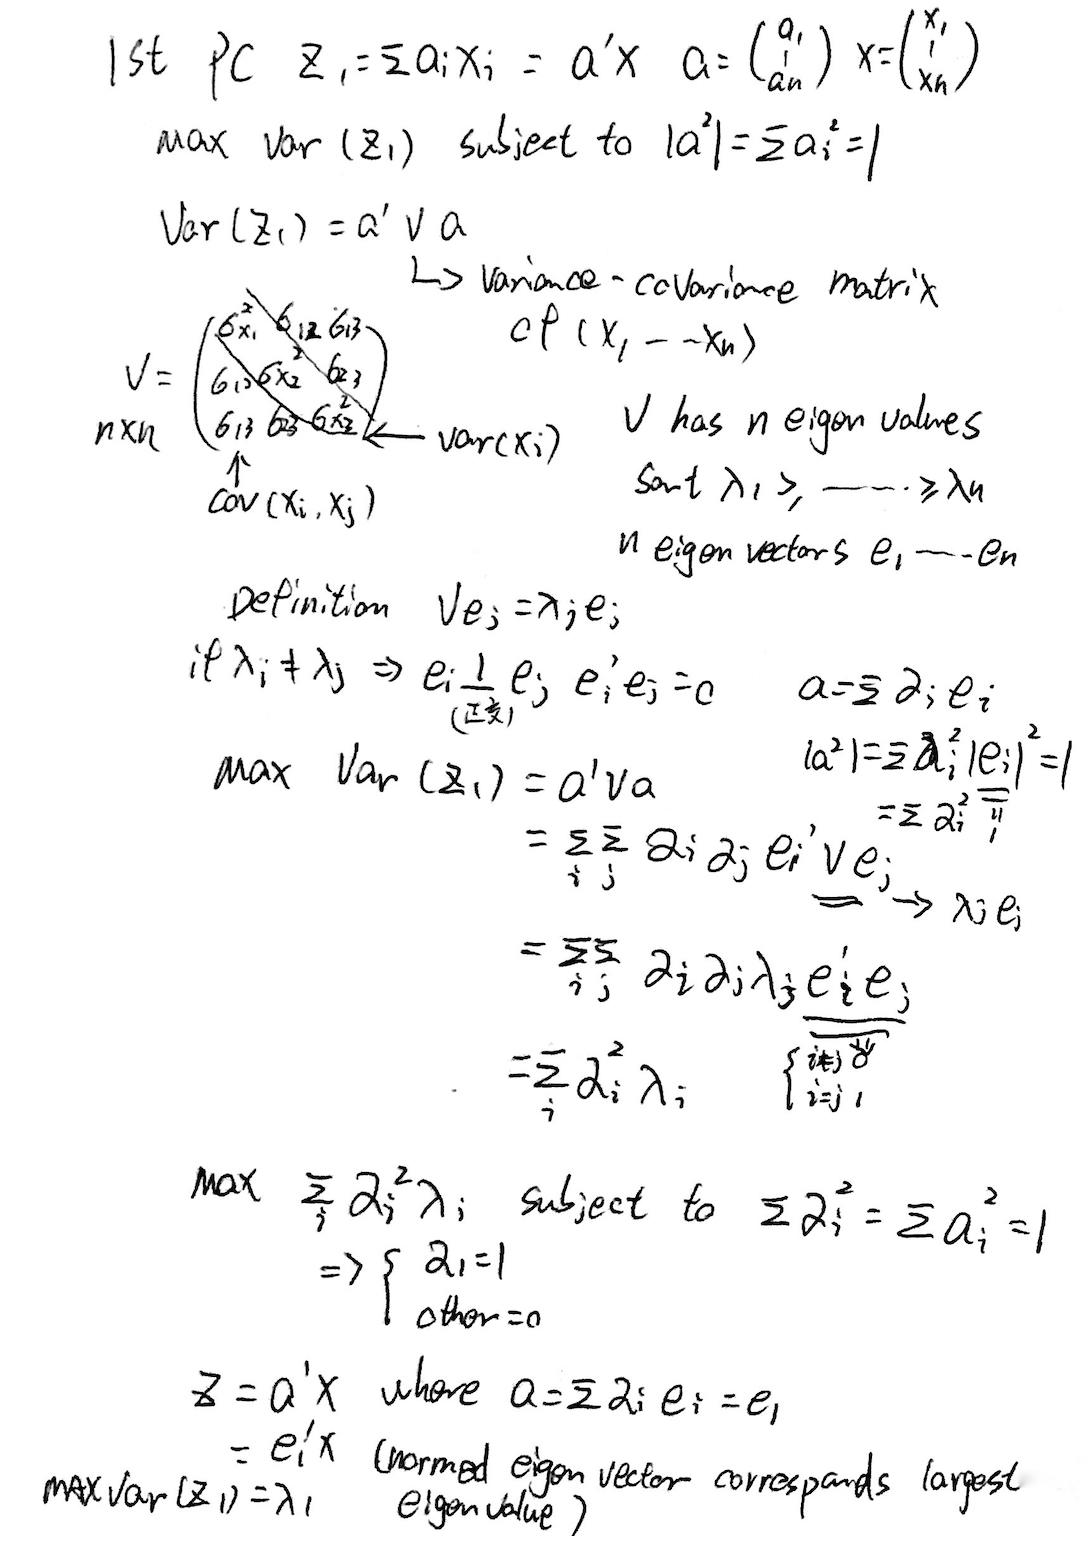 1st PC z₁=Σaᵢxᵢ = a'x a=(a₁ | aₙ) x=(x₁ | xₙ)
max var(z₁) subject to |a²|=Σaᵢ²=1
Var(z₁)=a'Va
↳ variance-covariance matrix
of (x₁--xₙ)
V= (σ²x₁ σ₁₂ σ₁₃
σ₁₂ σx₂² σ₂₃
n×n σ₁₃ σ₂₃ σx₃²) ← var(xᵢ)
↑
cov(xᵢ,xⱼ)
V has n eigen values
sort λ₁≥, ----≥λₙ
n eigen vectors e₁---eₙ
Definition Veⱼ=λⱼeⱼ
if λᵢ≠λⱼ ⇒ eᵢ⊥eⱼ eᵢ'eⱼ=0
(正交)
a=Σ∂ᵢeᵢ
|a²|=Σ∂ᵢ²|eᵢ|²=1
=Σ∂ᵢ² " 1
max Var(z₁)=a'Va
=Σᵢ Σⱼ ∂ᵢ∂ⱼ eᵢ'Veⱼ → λⱼeⱼ
=Σᵢ Σⱼ ∂ᵢ∂ⱼλⱼ eᵢ'eⱼ
=Σᵢ ∂ᵢ²λᵢ { i≠j 0
i=j 1
max Σᵢ ∂ᵢ²λᵢ subject to Σ∂ᵢ²=Σaᵢ²=1
=> { ∂₁=1
other=0
z=a'x where a=Σ∂ᵢeᵢ=e₁
=e₁'x (normed eigen vector correspands largest
eigen value)
MAX Var(z₁)=λ₁